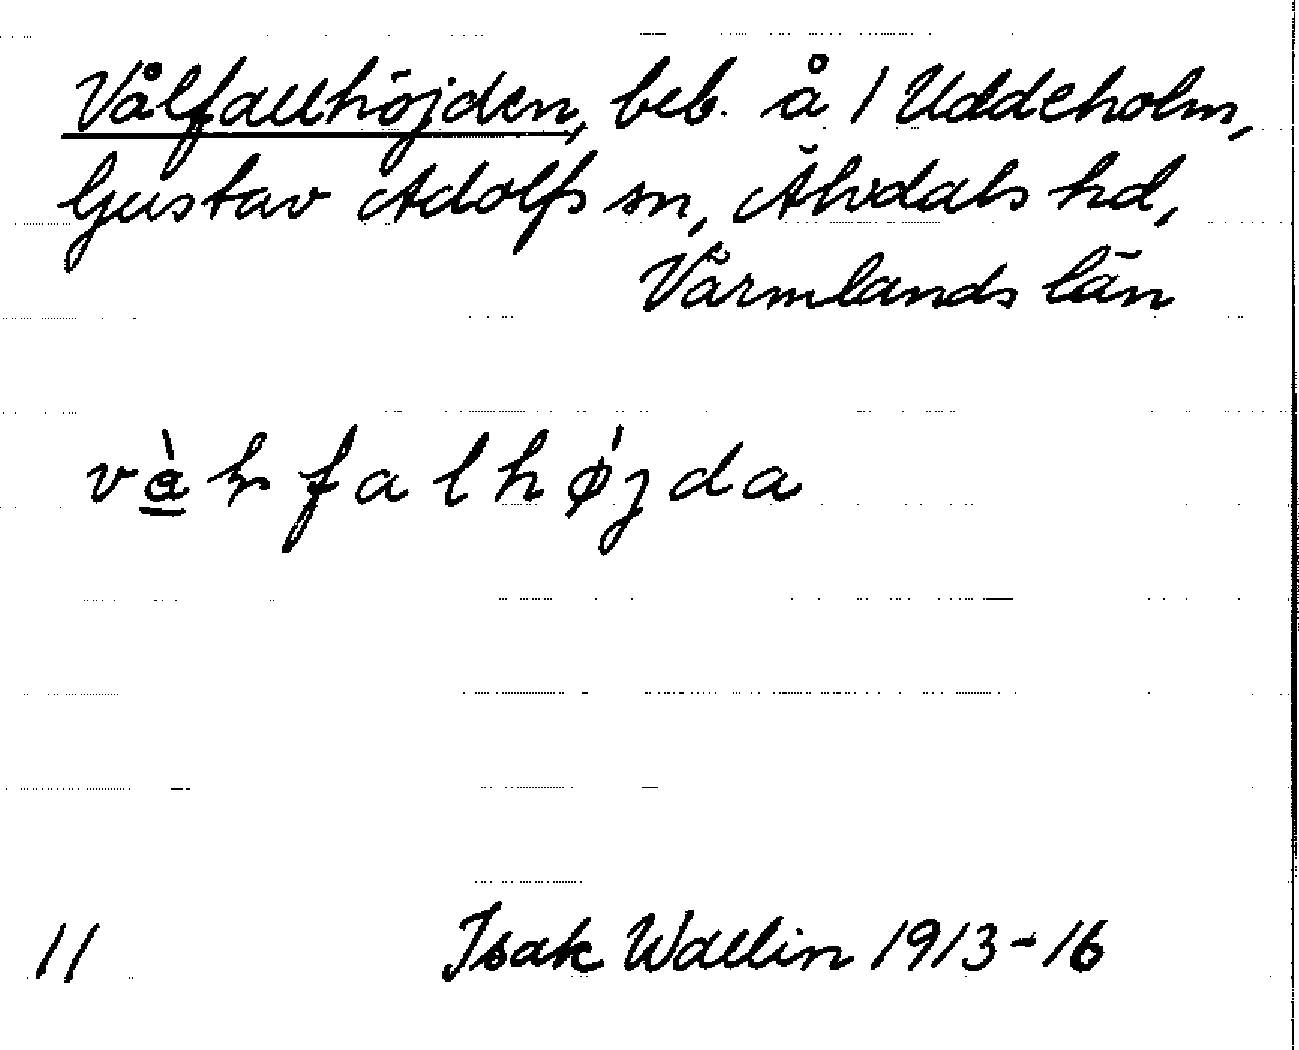 Vålfallhöjden, beb. å 1 Uddeholm,
Gustav Adolfs sn, Älvdals hd,
Värmlands län
falhøjda
11 Isak Wallin 1913-16